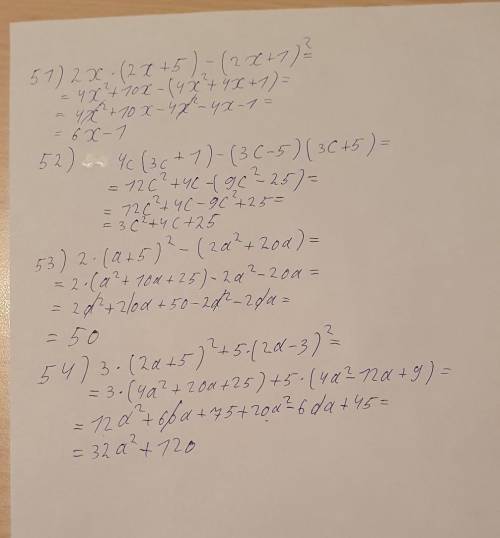 51) 2x · (2x+5) - (2x+1)² =
= 4x²+10x - (4x²+4x+1) =
= 4x²+10x-4x²-4x-1 =
= 6x-1
52) 4c(3c+1)-(3c-5)(3c+5)=
= 12c²+4c-(9c²-25)=
= 12c²+4c-9c²+25=
= 3c²+4c+25
53) 2·(a+5)²-(2a²+20a)=
= 2·(a²+10a+25)-2a²-20a=
= 2a²+20a+50-2a²-20a=
= 50
54) 3·(2a+5)²+5·(2a-3)²=
= 3·(4a²+20a+25)+5·(4a²-12a+9)=
= 12a²+60a+75+20a²-60a+45=
= 32a²+120